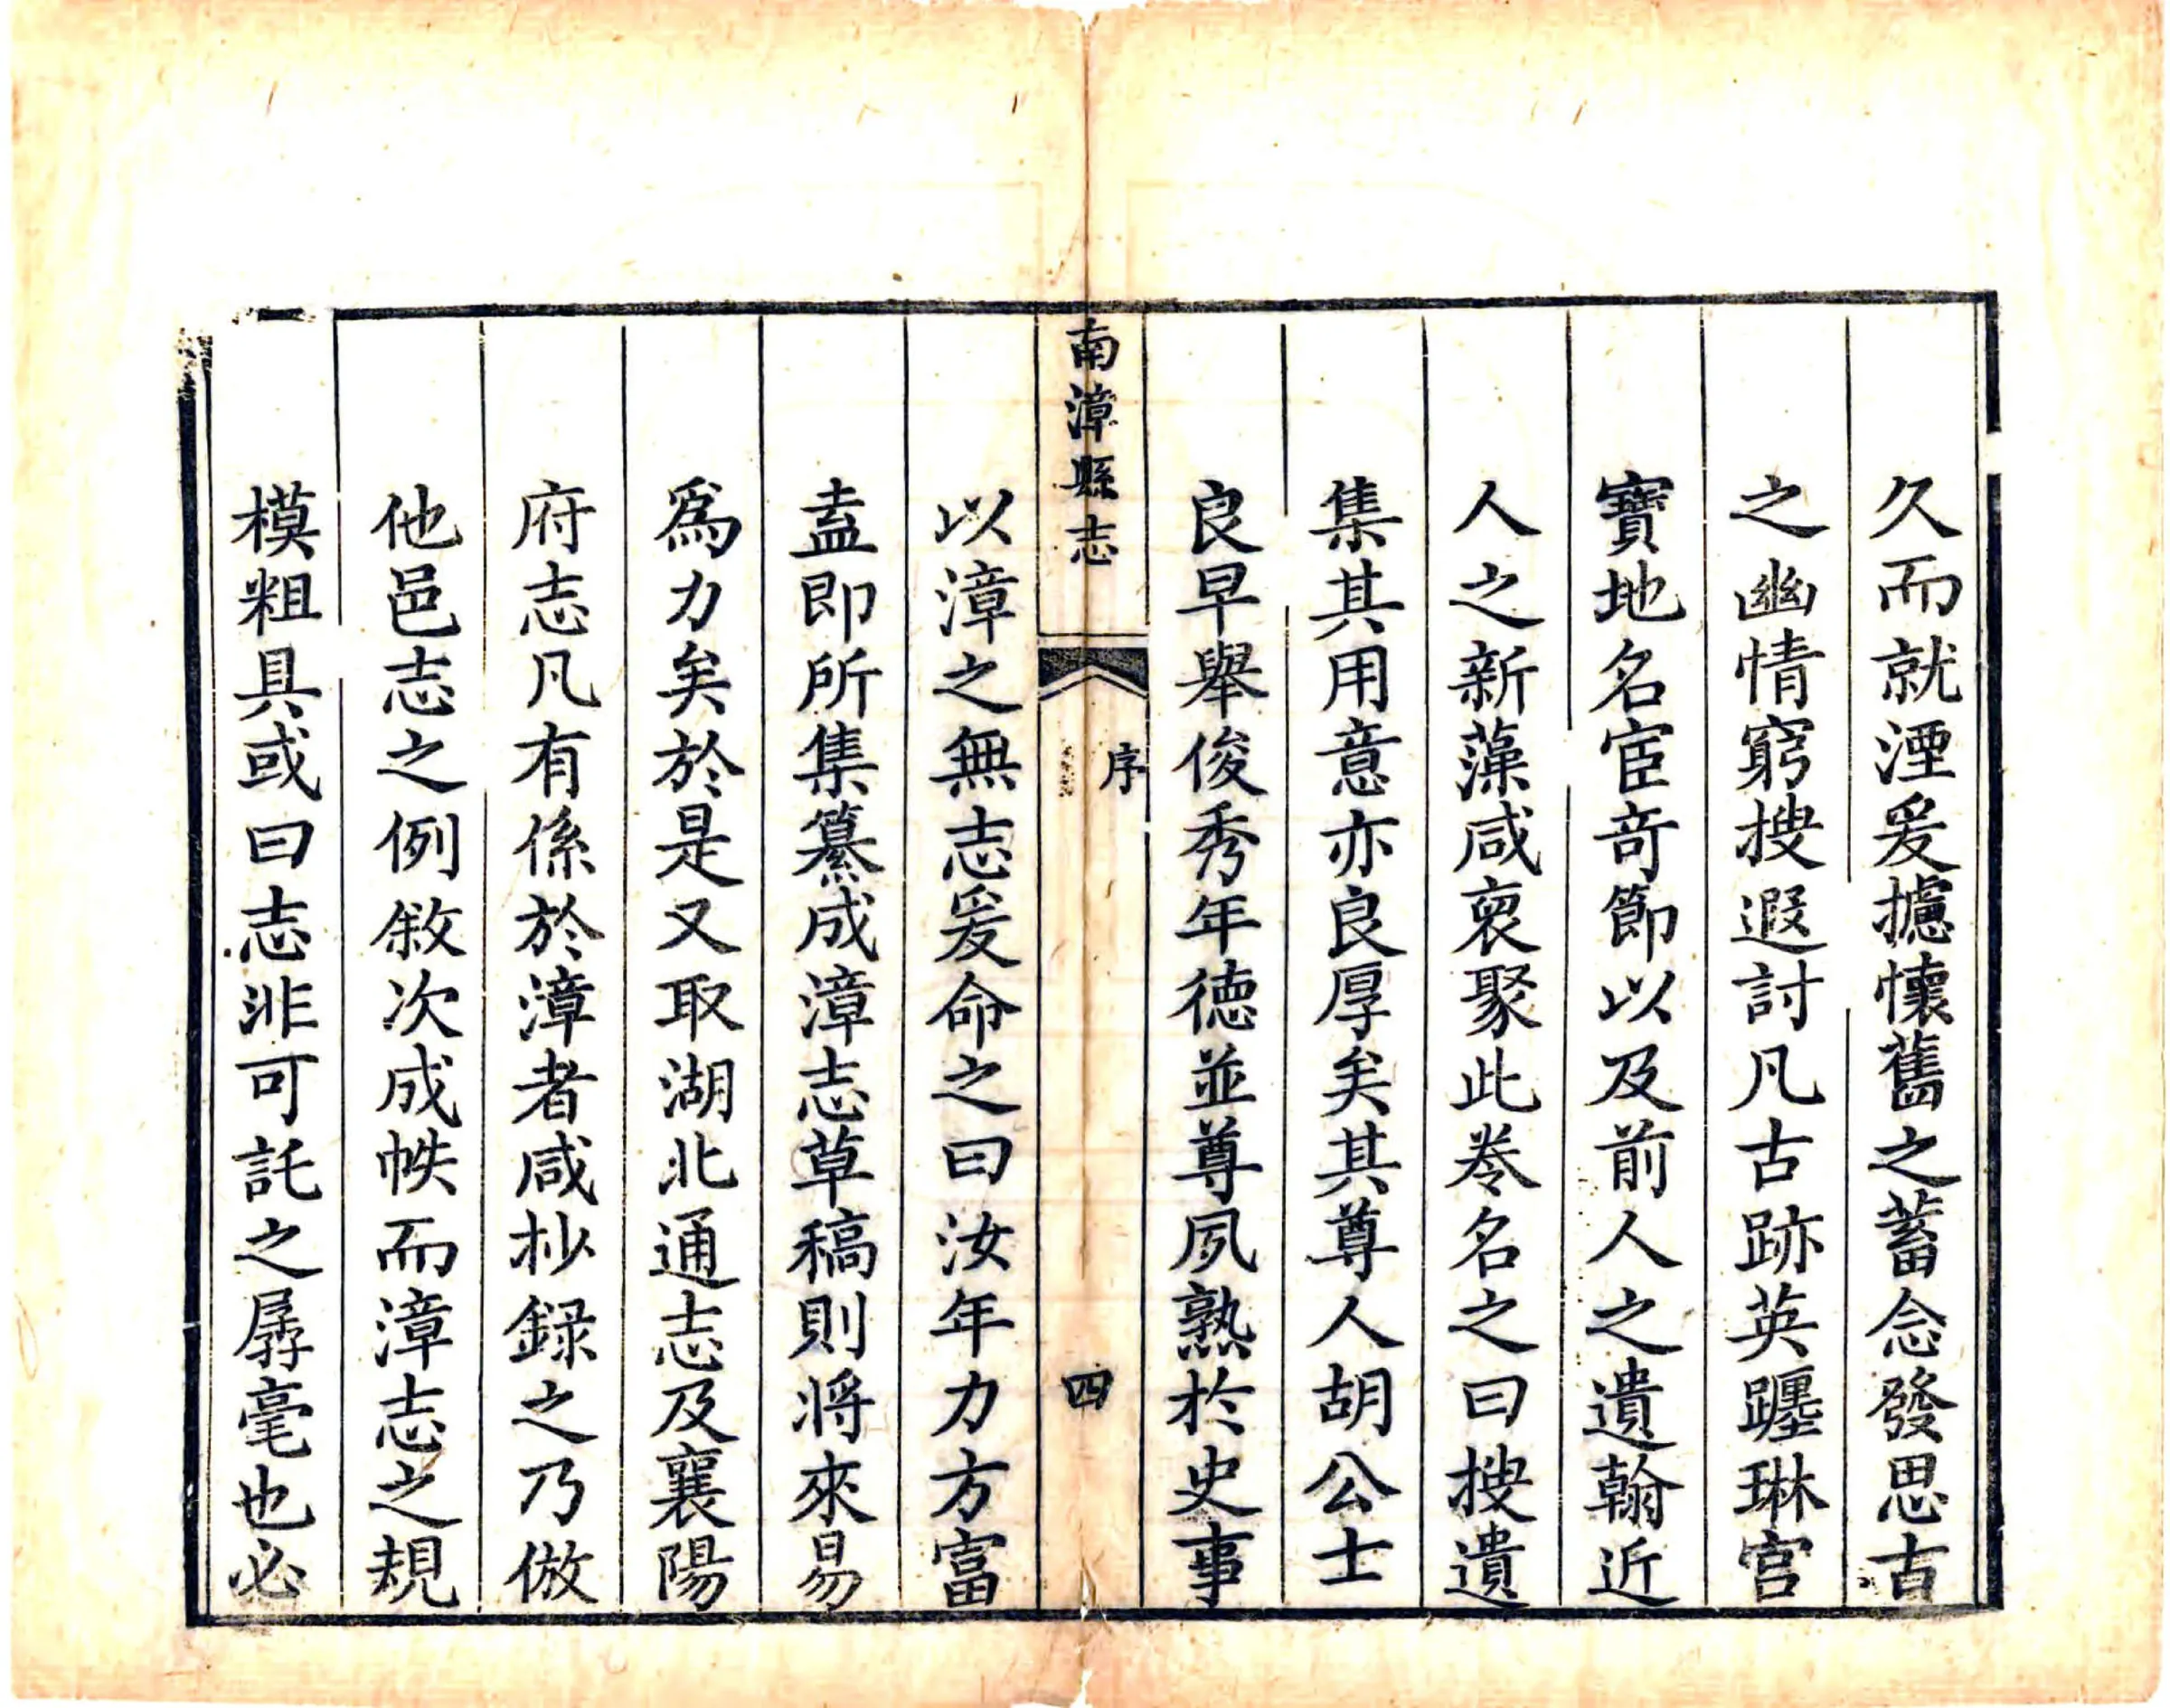 久而就湮爰攄懷舊之蓄念發思古
之幽情窮搜遐討凡古跡英躔琳宫
寶地名宦奇節以及前人之遺翰近
人之新藻咸裒聚此卷名之曰搜遺
集其用意亦良厚矣其尊人胡公士
良早舉俊秀年德並尊夙熟於史事
南漳縣志
序
四
以漳之無志爰命之曰汝年力方富
盍即所集纂成漳志草稿則將來易
爲力矣於是又取湖北通志及襄陽
府志凡有係於漳者咸抄録之乃倣
他邑志之例敘次成帙而漳志之規
模粗具或曰志非可託之孱毫也必